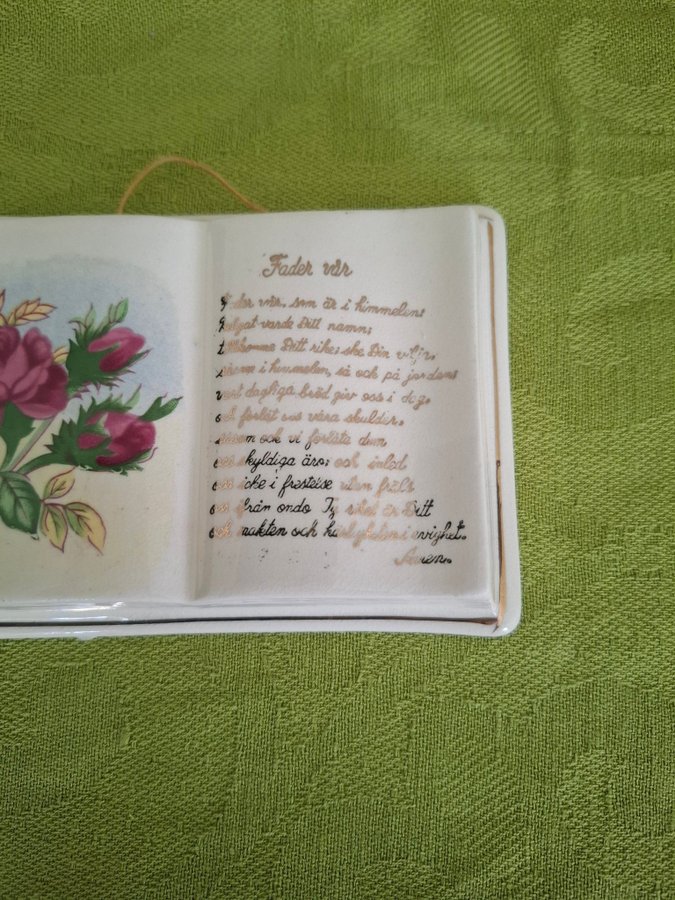 Fader vår
Fader vår, som är i himmelen;
Helgat varde Ditt namn;
tillkomme Ditt rike; ske Din vilja,
såsom i himmelen, så ock på jorden;
vårt dagliga bröd giv oss i dag,
och förlåt oss våra skulder,
såsom ock vi förlåta dem
oss skyldiga äro; och inled
oss icke i frestelse utan fräls
oss ifrån ondo Ty riket är Ditt
och makten och härligheten i evighet.
Amen.